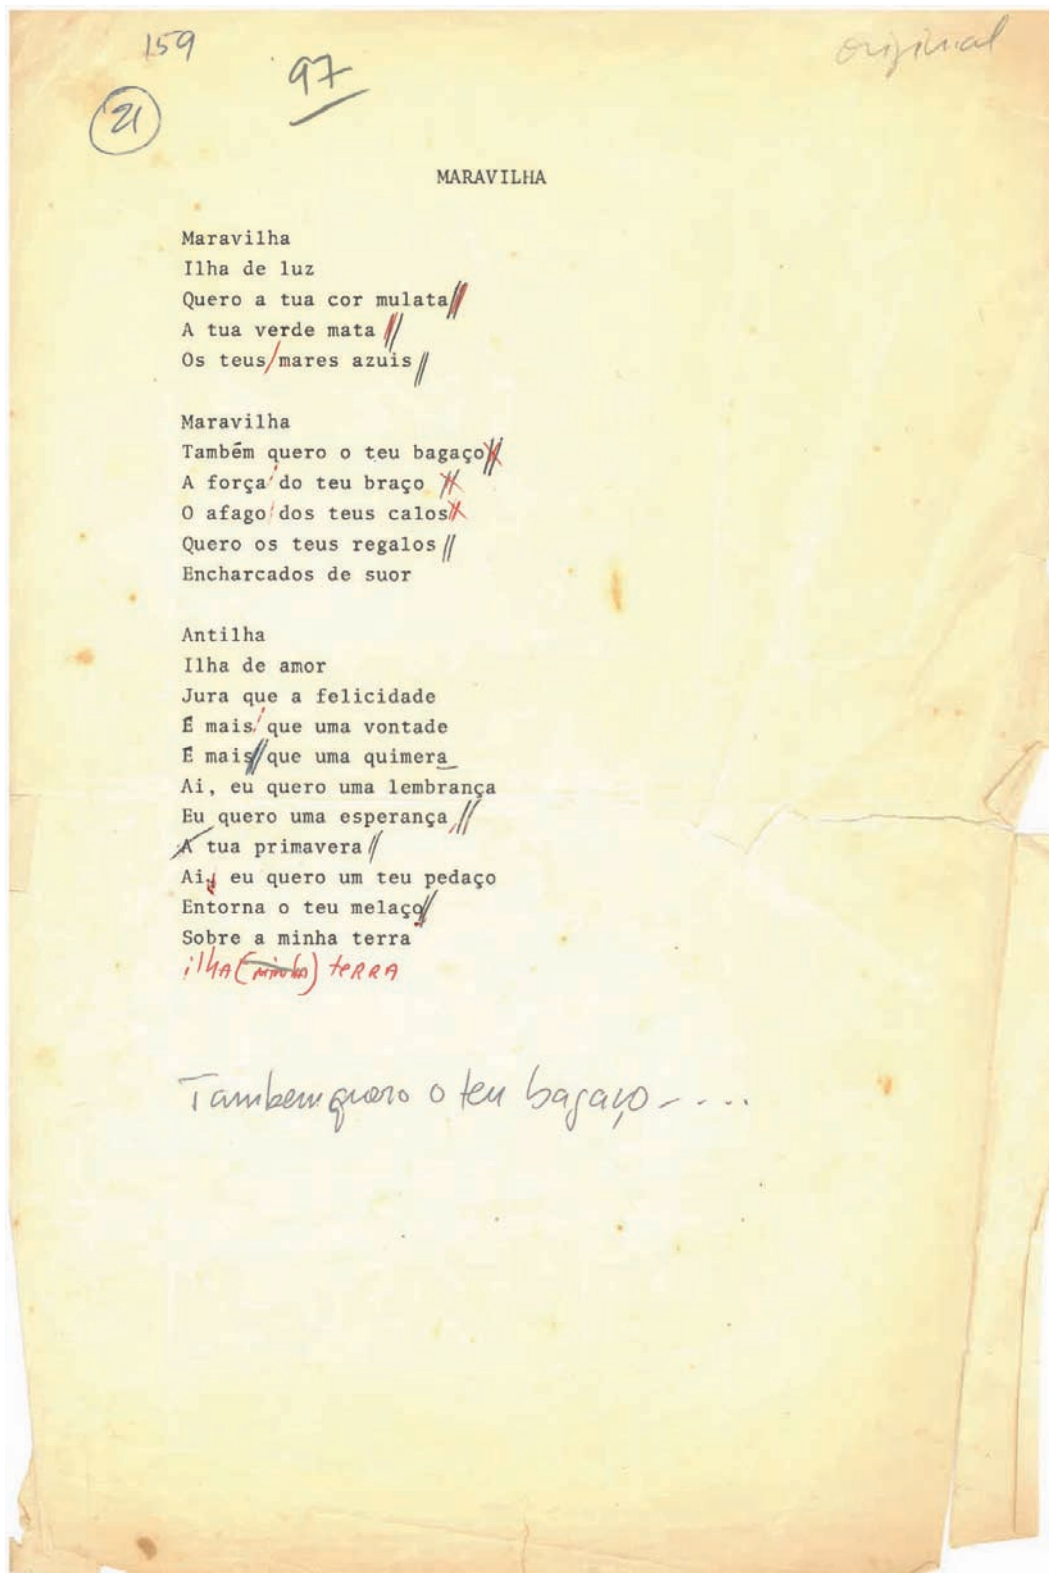 159
97
original
21
MARAVILHA
Maravilha
Ilha de luz
Quero a tua cor mulata//
A tua verde mata //
Os teus/mares azuis //
Maravilha
Também quero o teu bagaço//
A força/do teu braço //
O afago/dos teus calos//
Quero os teus regalos //
Encharcados de suor
Antilha
Ilha de amor
Jura que a felicidade
É mais/que uma vontade
É mais//que uma quimera
Ai, eu quero uma lembrança
Eu quero uma esperança //
A tua primavera //
Ai, eu quero um teu pedaço
Entorna o teu melaço//
Sobre a minha terra
ilha (minha) terra
Tambem quero o teu bagaço - ....